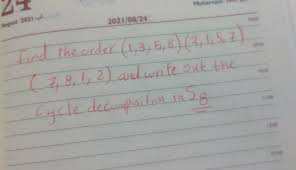 24
August 2021
2021/08/24
Find the order (1,3,5,8) (2,1,5,7)
(7,8,1,2) and write out the
cycle decomposition in S8